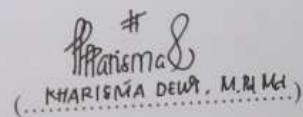 #
Kharisma
(KHARISMA DEWI, M.Pd